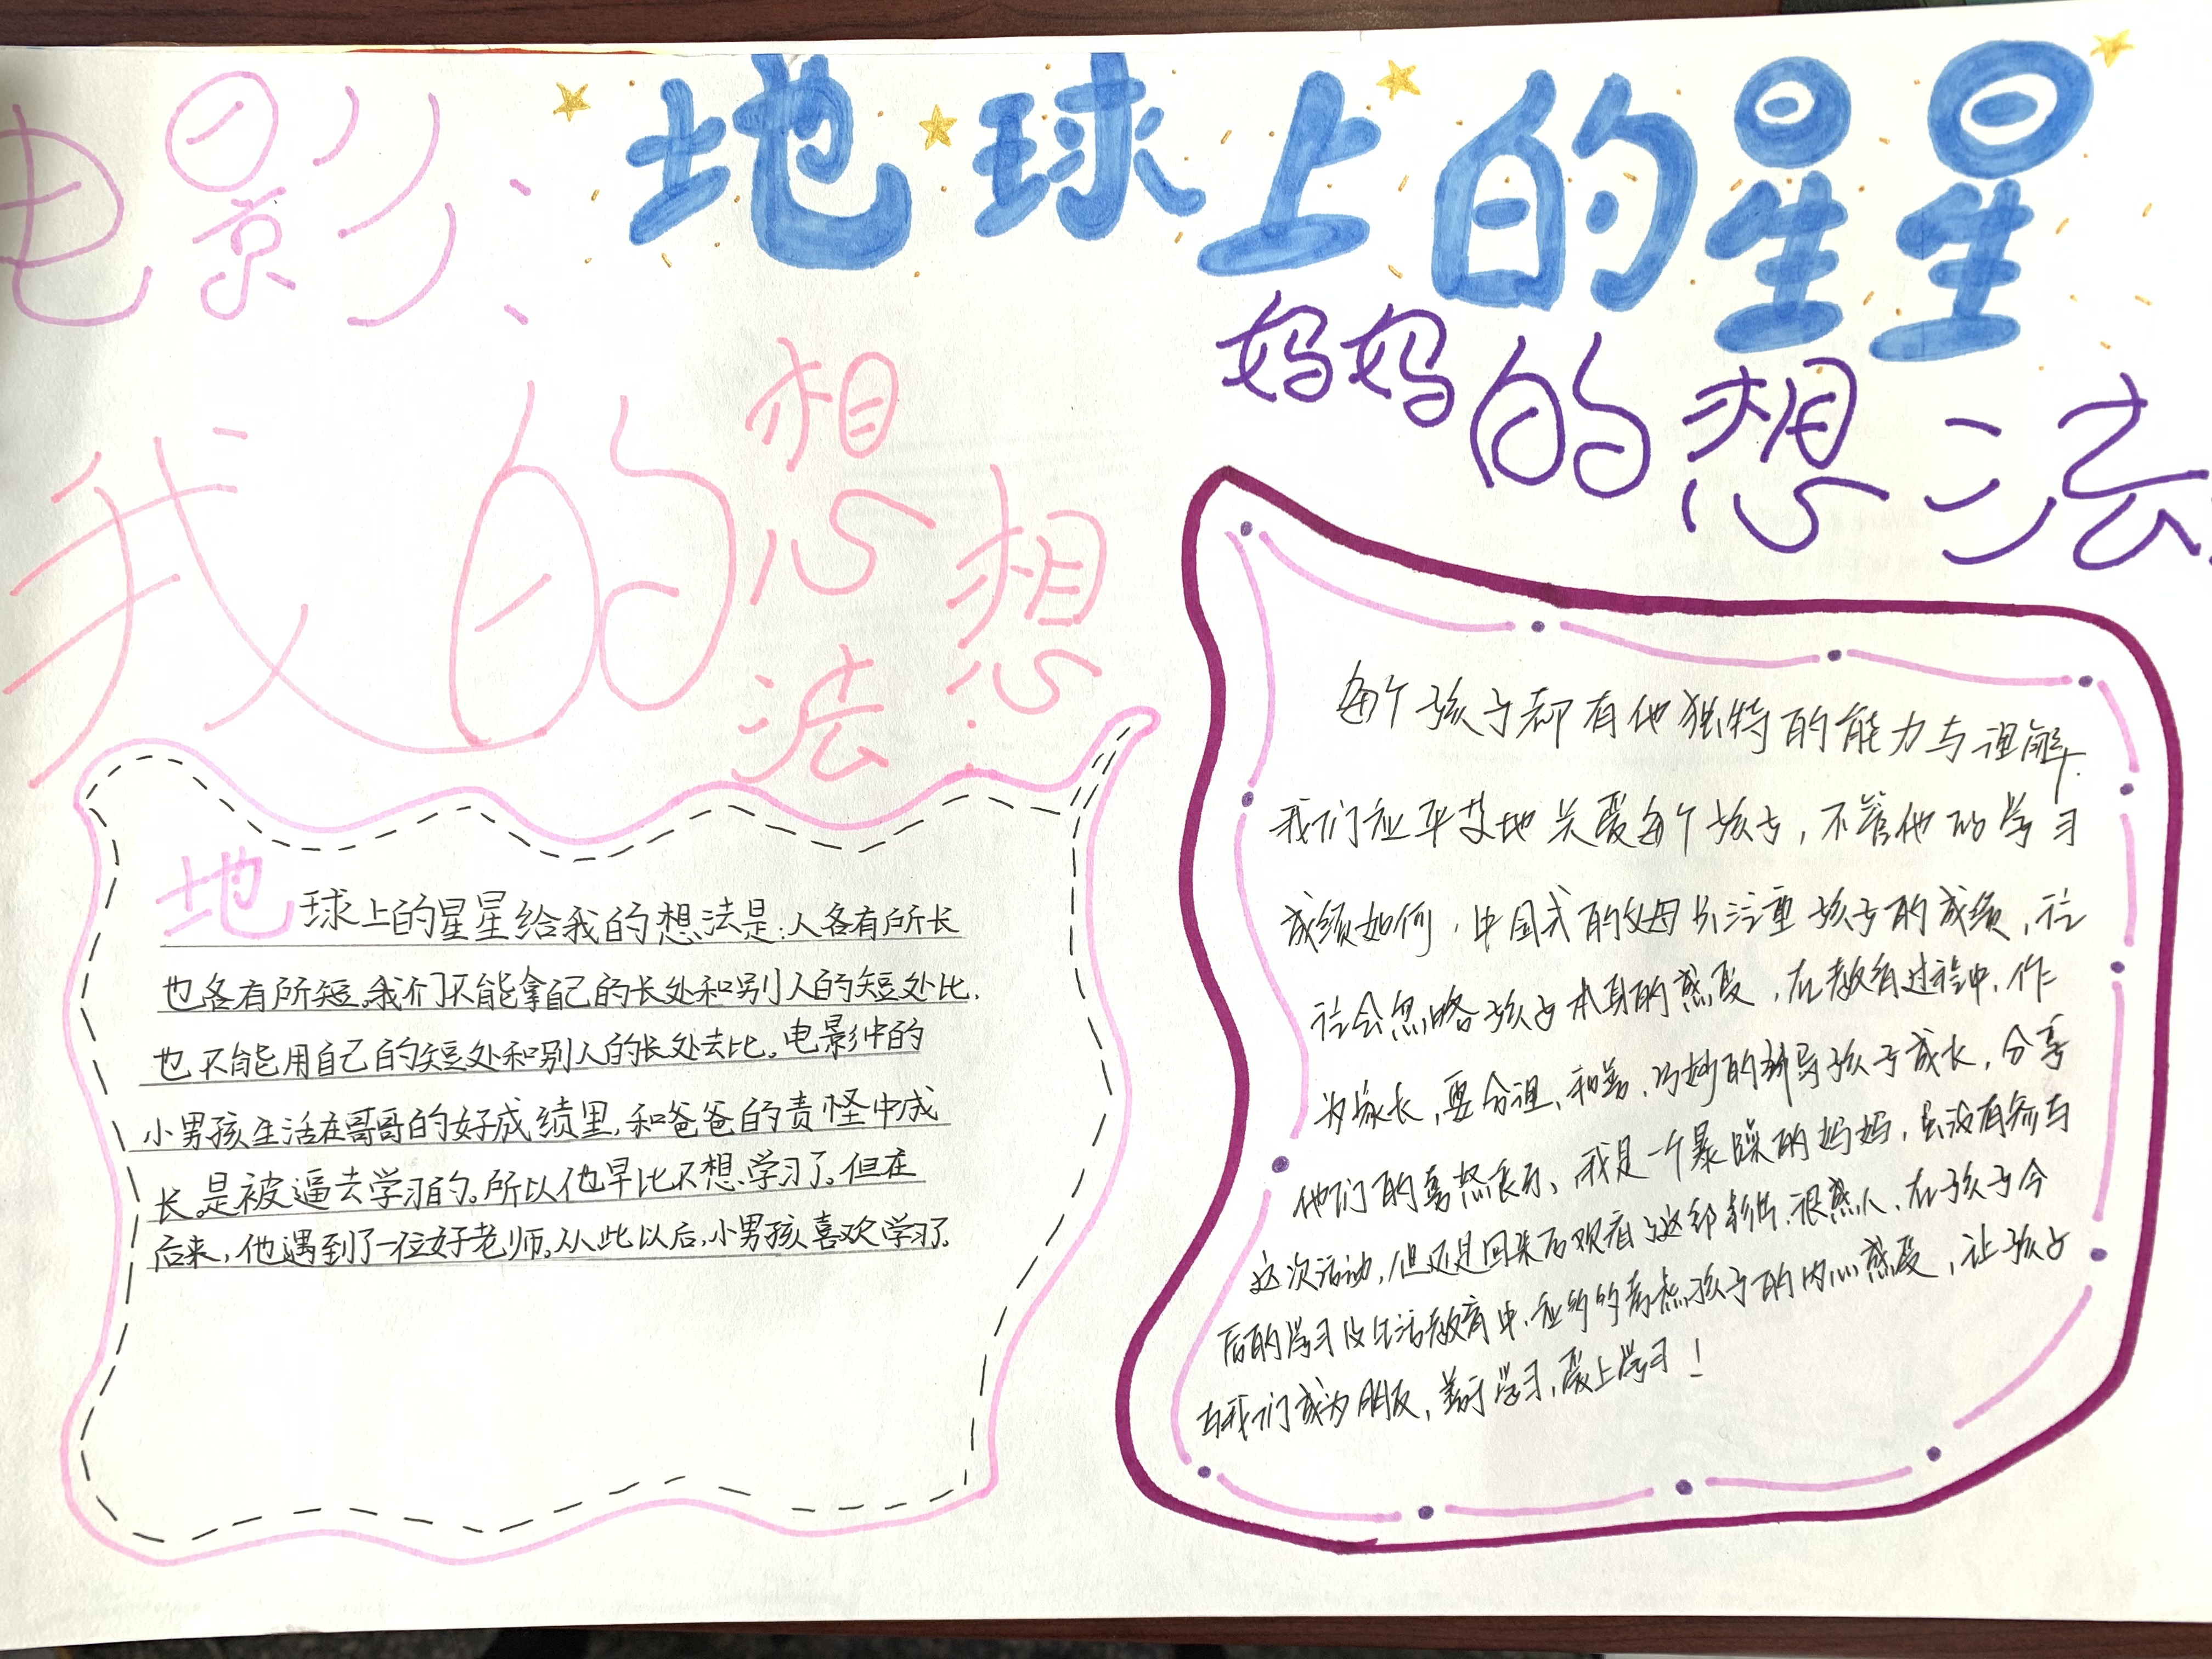 电影：地球上的星星
我的想法
想
妈妈的想法
地球上的星星给我的想法是：人各有所长
也各有所短。我们不能拿自己的长处和别人的短处比，
也不能用自己的短处和别人的长处去比。电影中的
小男孩生活在哥哥的好成绩里，和爸爸的责怪中成
长。是被逼去学习的。所以他早比不想学习了。但在
后来，他遇到了一位好老师。从此以后，小男孩喜欢学习了。
每个孩子都有他独特的能力与理解.
我们应平等地关爱每个孩子，不管他的学习
成绩如何，中国式的父母只注重孩子的成绩，往
往会忽略孩子本身的感受，在教育过程中，作
为家长，要合理、和善、巧妙的辅导孩子成长，分享
他们的喜怒哀乐、我是一个暴躁的妈妈，虽没有参与
这次活动，但还是回来后观看了这部影片，很感人、在孩子今
后的学习及生活教育中，应多多考虑孩子的内心感受，让孩子
与我们成为朋友，善于学习，爱上学习！